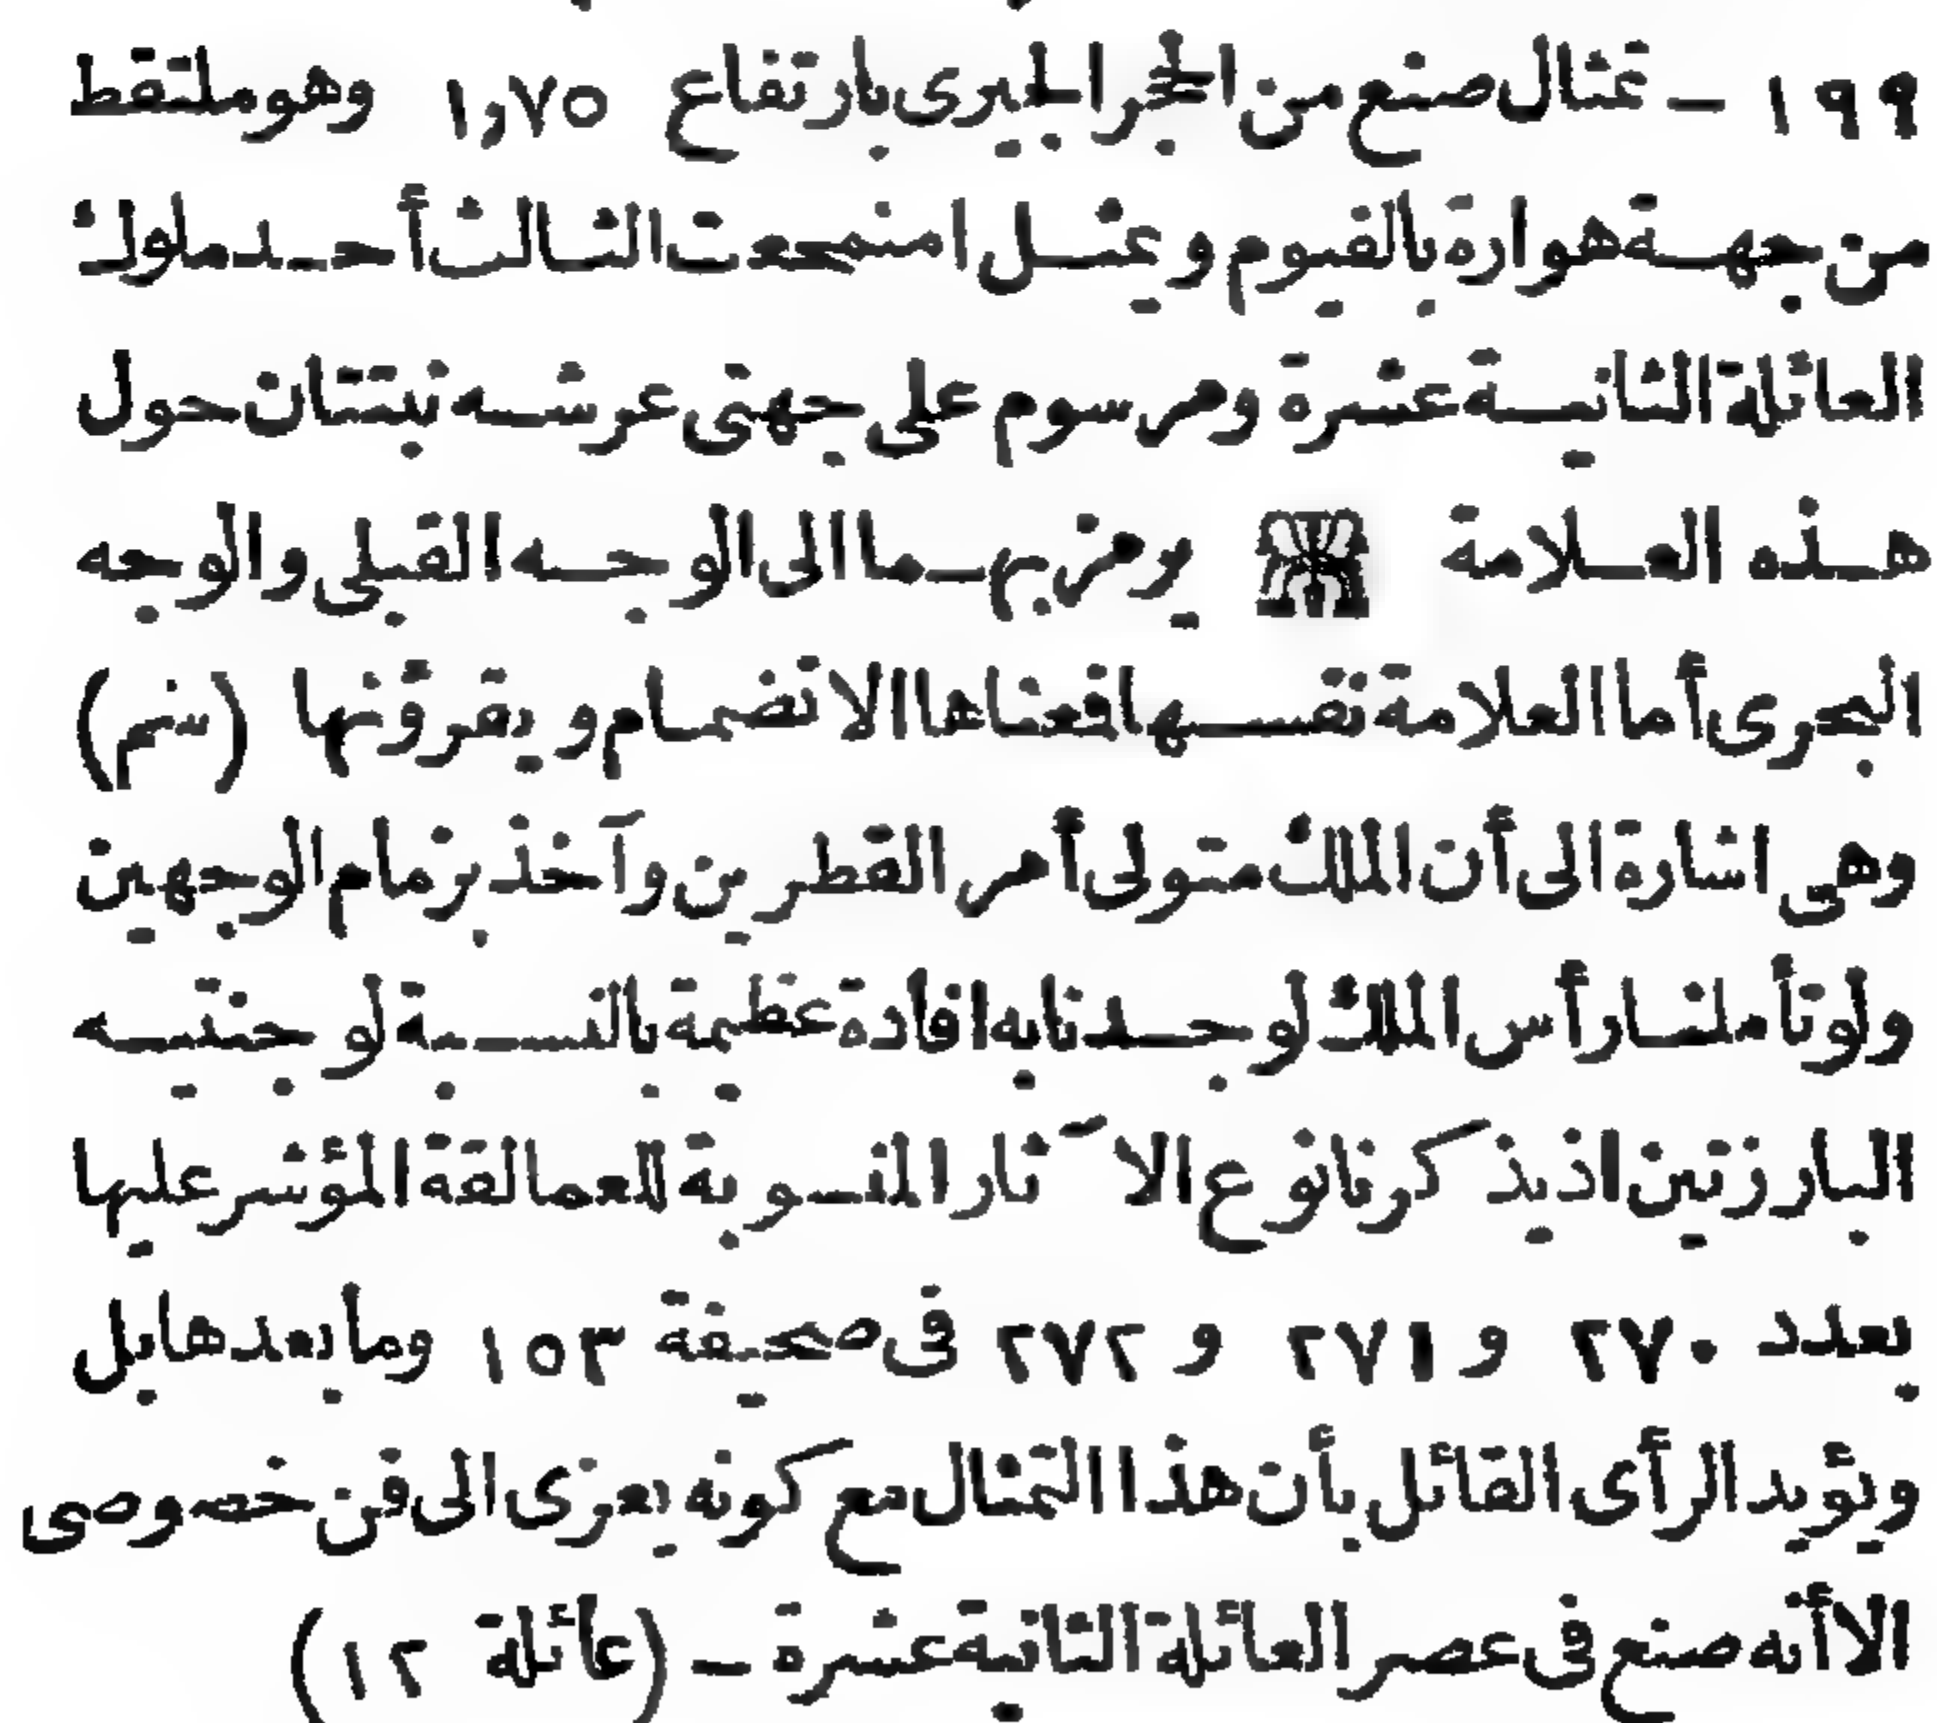 ١٩٩ – تمثال صنع من الحجر الجيرى بارتفاع ١,٧٥ وهو ملتقط
من جهة هوارة بالفيوم ويمثل امنمحعت الثالث أحد ملوك
العائلة الثانية عشرة ومرسوم على جهتى عرشه نبتتان حول
هذه العلامة يرمز بهما الى الوجه القبلى والوجه
البحرى أما العلامة نفسها فمعناها الانضمام ويقرؤنها (سنم)
وهى اشارة الى أن الملك متولى أمر القطرين وآخذ بزمام الوجهين
ولو تأملنا رأس الملك لوجدنا به افادة عظيمة بالنسبة لوجنتيه
البارزتين اذ يذكرنا نوع الآثار المنسوبة للعمالقة المؤشر عليها
بعدد ٢٧٠ و ٢٧١ و ٢٧٢ فى صحيفة ١٥٣ وما بعدها بل
ويؤيد الرأى القائل بأن هذا التمثال مع كونه يعزى الى فن خصوصى
الا أنه صنع فى عصر العائلة الثانية عشرة – (عائلة ١٢)